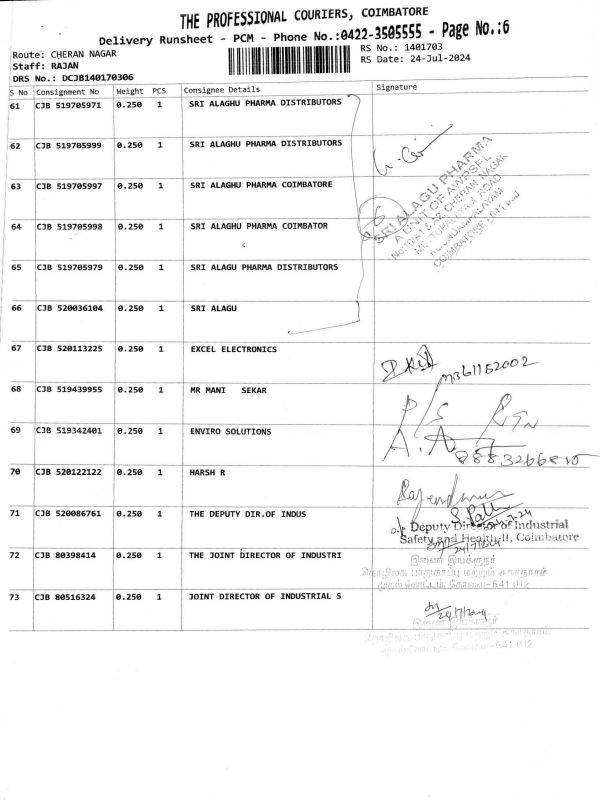 THE PROFESSIONAL COURIERS, COIMBATORE
Delivery Runsheet - PCM - Phone No.:0422-3505555 - Page No.:6
Route: CHERAN NAGAR
RS No.: 1401703
Staff: RAJAN
RS Date: 24-Jul-2024
DRS No.: DCJB140170306
S No Consignment No Weight PCS Consignee Details Signature
61 CJB 519705971 0.250 1 SRI ALAGHU PHARMA DISTRIBUTORS
62 CJB 519705999 0.250 1 SRI ALAGHU PHARMA DISTRIBUTORS
63 CJB 519705997 0.250 1 SRI ALAGHU PHARMA COIMBATORE
64 CJB 519705998 0.250 1 SRI ALAGHU PHARMA COIMBATOR
6
SRI ALAGU PHARMA
A UNIT OF AWPSFL
CHERAN NAGAR
ROAD
COIMBATORE - 641
65 CJB 519705979 0.250 1 SRI ALAGU PHARMA DISTRIBUTORS
66 CJB 520036104 0.250 1 SRI ALAGU
67 CJB 520113225 0.250 1 EXCEL ELECTRONICS
68 CJB 519439955 0.250 1 MR MANI SEKAR
69 CJB 519342401 0.250 1 ENVIRO SOLUTIONS
8883266810
70 CJB 520122122 0.250 1 HARSH R
Rajendran
71 CJB 520086761 0.250 1 THE DEPUTY DIR.OF INDUS
Deputy Director of Industrial
Safety and Health-II, Coimbatore
24/7/24
72 CJB 80398414 0.250 1 THE JOINT DIRECTOR OF INDUSTRI
இணை இயக்குநர்
தொழிலக பாதுகாப்பு மற்றும் சுகாதாரம்
கோவை-641 012
73 CJB 80516324 0.250 1 JOINT DIRECTOR OF INDUSTRIAL S
இணை இயக்குநர்
தொழிலக பாதுகாப்பு மற்றும் சுகாதாரம்
கோவை-641 012